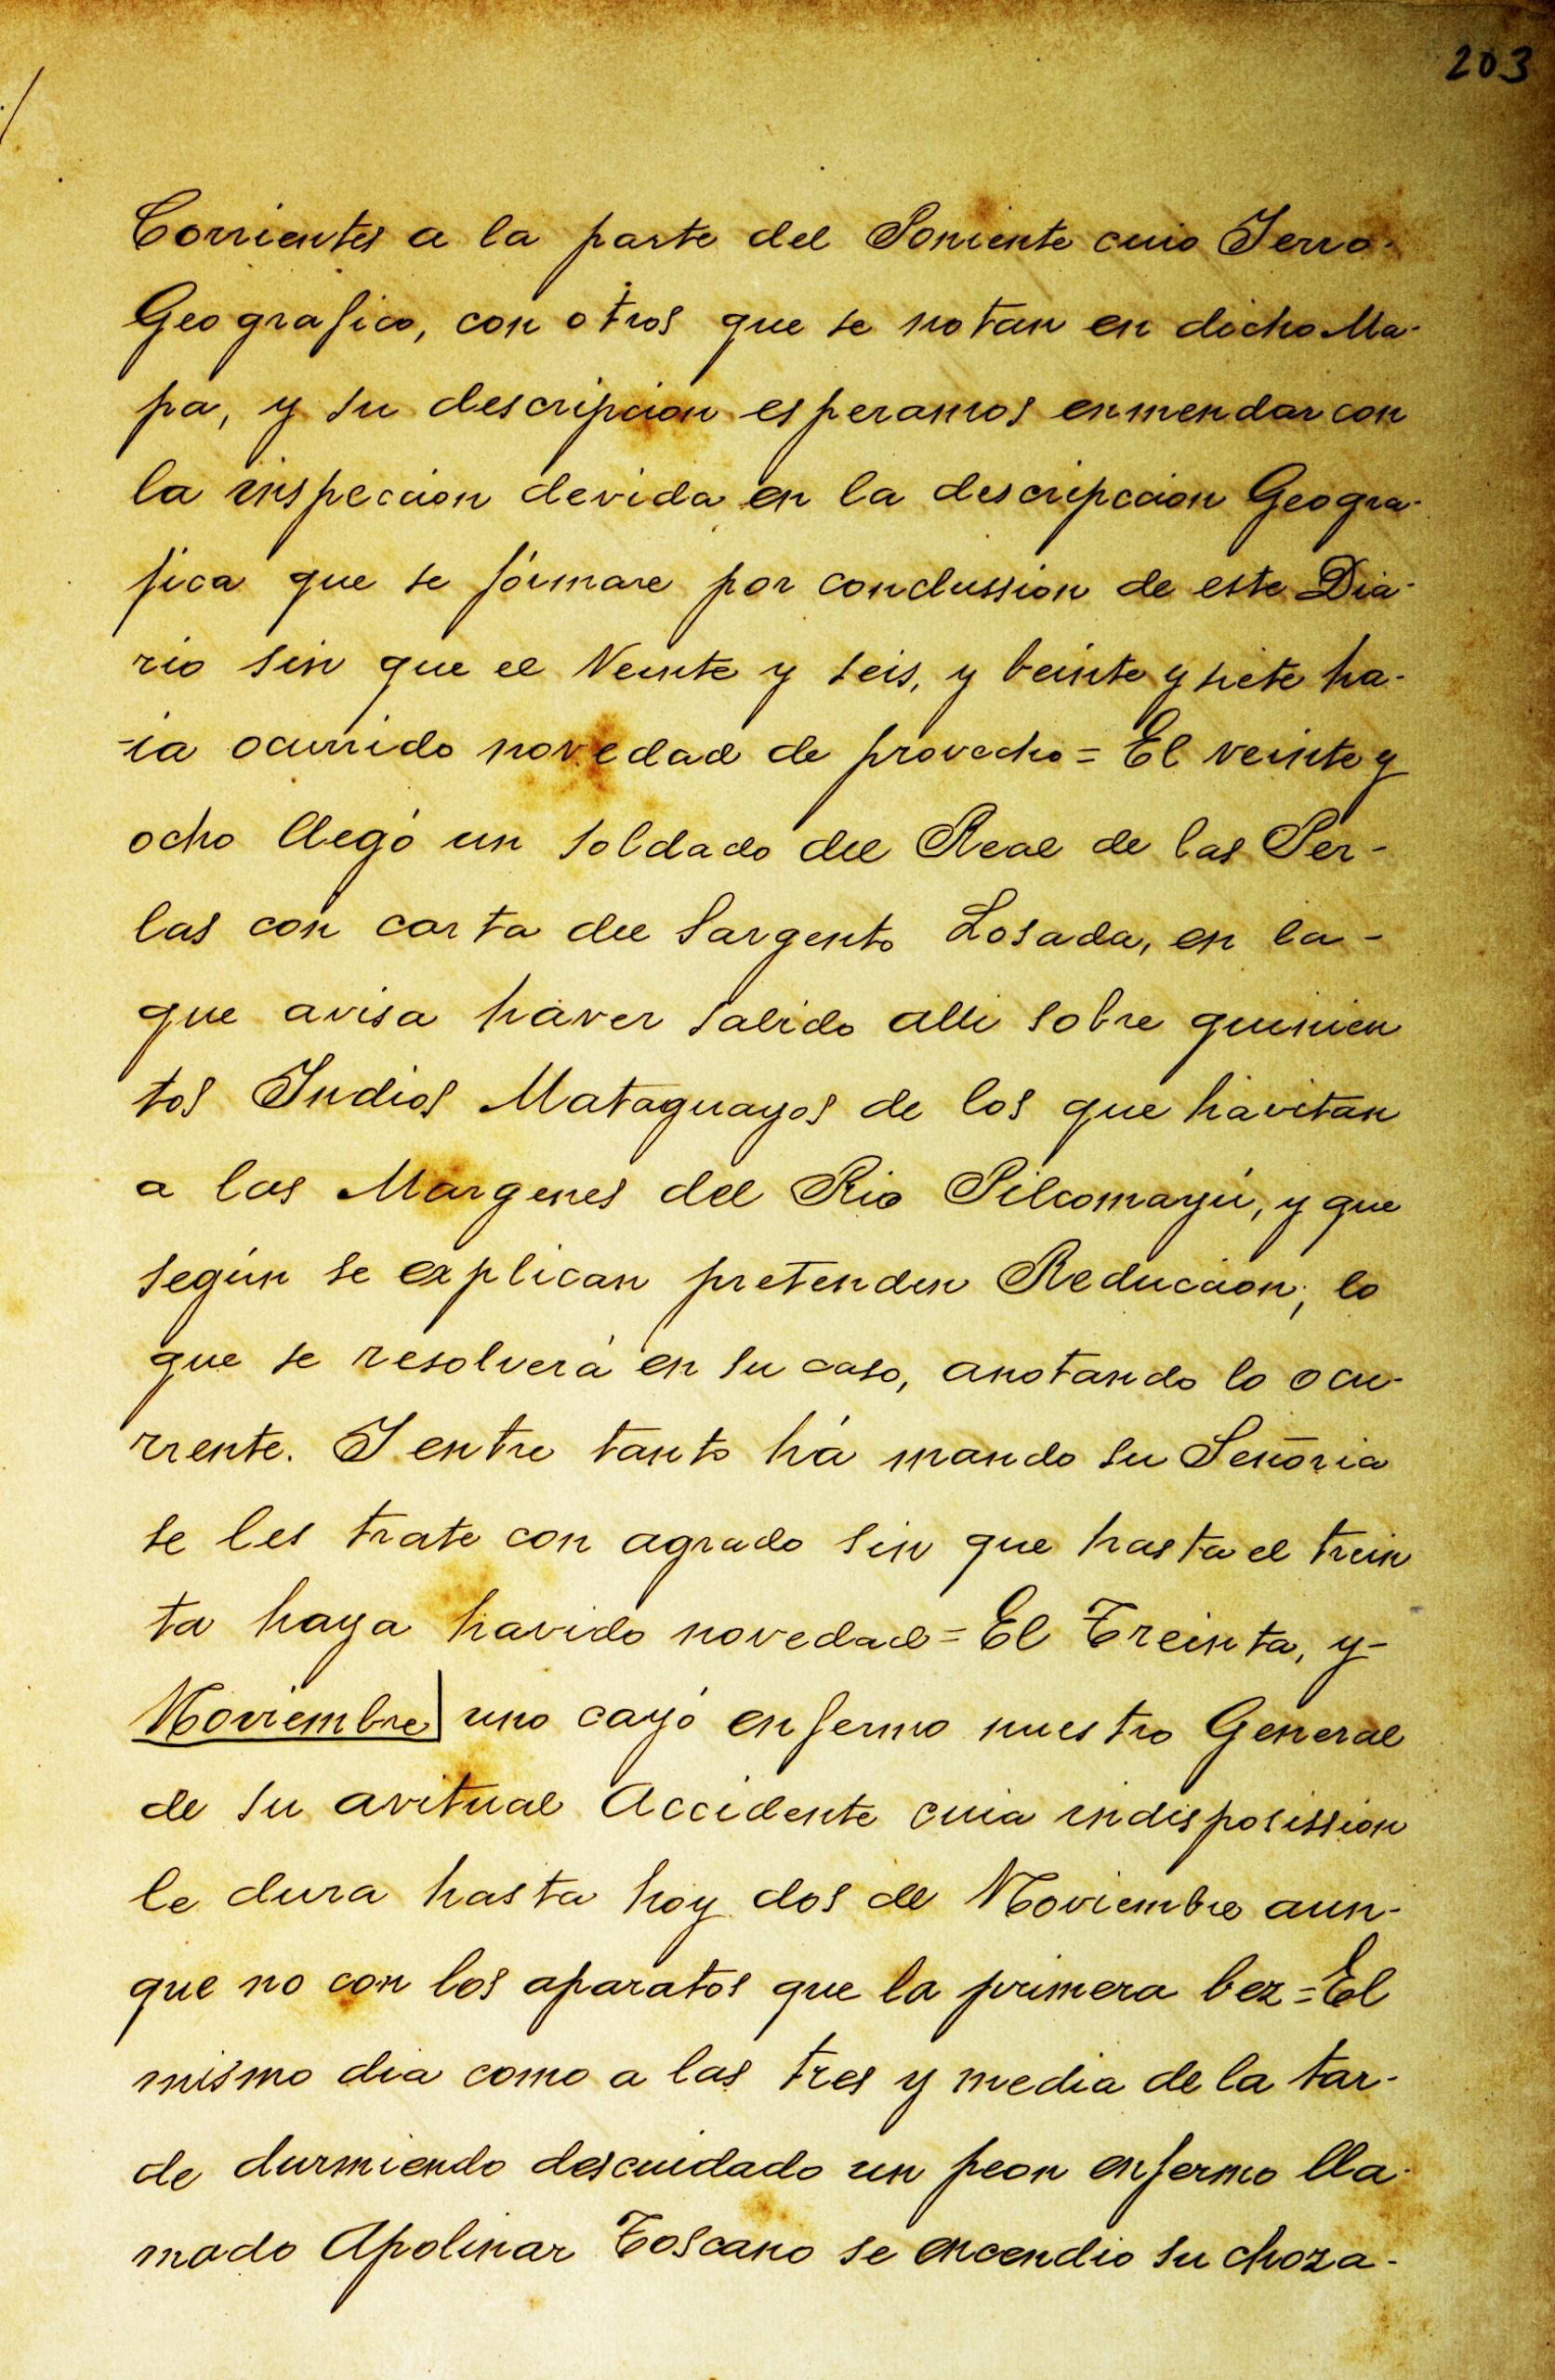 203
Corrientes a la parte del Poniente cuio Jerro-
Geografico, con otros que se notan en dicho Ma-
pa, y su descripcion esperamos enmendar con
la inspeccion devida en la descripccion Geogra-
fica que se fórmare por conclussion de este Dia-
rio sin que el Veinte y seis, y beinte y siete ha-
-ia ocurrido novedad de provecho = El veinte y
ocho llegó un soldado del Real de las Per-
las con carta del Sargento Losada, en la -
que avisa haver salido alli sobre quinien
tos Indios Mataguayos de los que havitan
a las Margenes del Rio Pilcomayú, y que
según se explican pretenden Reduccion; lo
que se resolverá en su caso, anotando lo ocu-
rrente. I entre tanto há mando su Señoria
se les trate con agrado sin que hasta el trein
ta haya havido novedad = El Treinta, y -
Noviembre uno cayó enfermo nuestro General
de su avitual Accidente cuia indisposission
le dura hasta hoy dos de Noviembre aun-
que no con los aparatos que la primera bez = El
mismo dia como a las tres y media de la tar-
de durmiendo descuidado un peon enfermo lla-
mado Apolinar Toscano se encendio su choza -